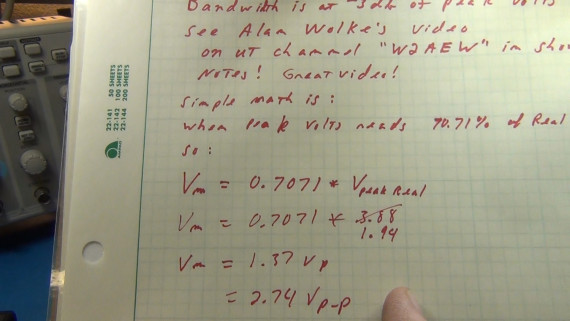 Bandwidth is at -3db of peak volts
See Alan Wolke's video
on UT channel "W2AEW" in sho
Notes! Great video!
Simple math is:
when peak volts reads 70.71% of Real
so:
Vm = 0.7071 * Vpeak Real
Vm = 0.7071 * 3.88
1.94
Vm = 1.37 Vp
= 2.74 Vp-p
22-141 50 SHEETS
22-142 100 SHEETS
22-144 200 SHEETS